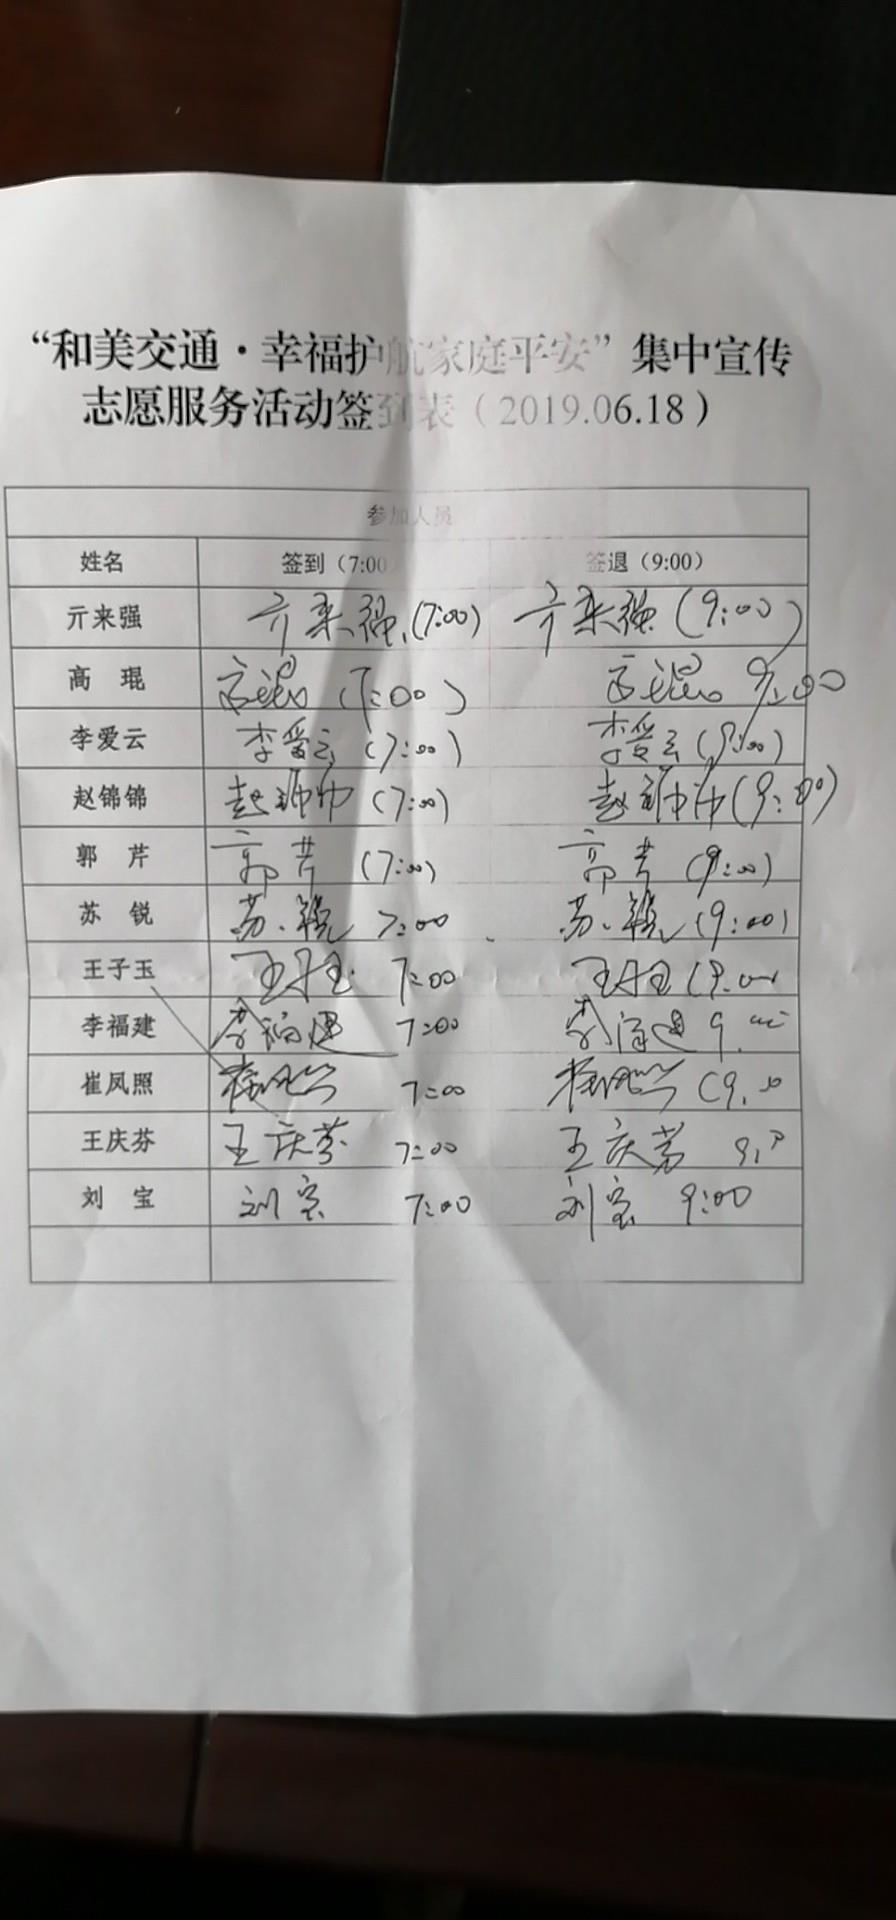 “和美交通·幸福护航家庭平安”集中宣传
志愿服务活动签到表（2019.06.18）
参加人员
姓名 签到（7:00 签退（9:00）
亓来强 亓来强 (7:00) 亓来强 (9:00)
高 琨 高琨 (7:00) 高琨 9:00
李爱云 李爱云 (7:00) 李爱云 (9:00)
赵锦锦 赵锦锦 (7:00) 赵锦锦 (9:00)
郭 芹 郭芹 (7:00) 郭芹 (9:00)
苏 锐 苏锐 7:00 苏锐 (9:00)
王子玉 王子玉 7:00 王子玉 (9:00
李福建 李福建 7:00 李福建 9
崔凤照 崔凤照 7:00 崔凤照 (9
王庆芬 王庆芬 7:00 王庆芬 9
刘 宝 刘宝 7:00 刘宝 9:00